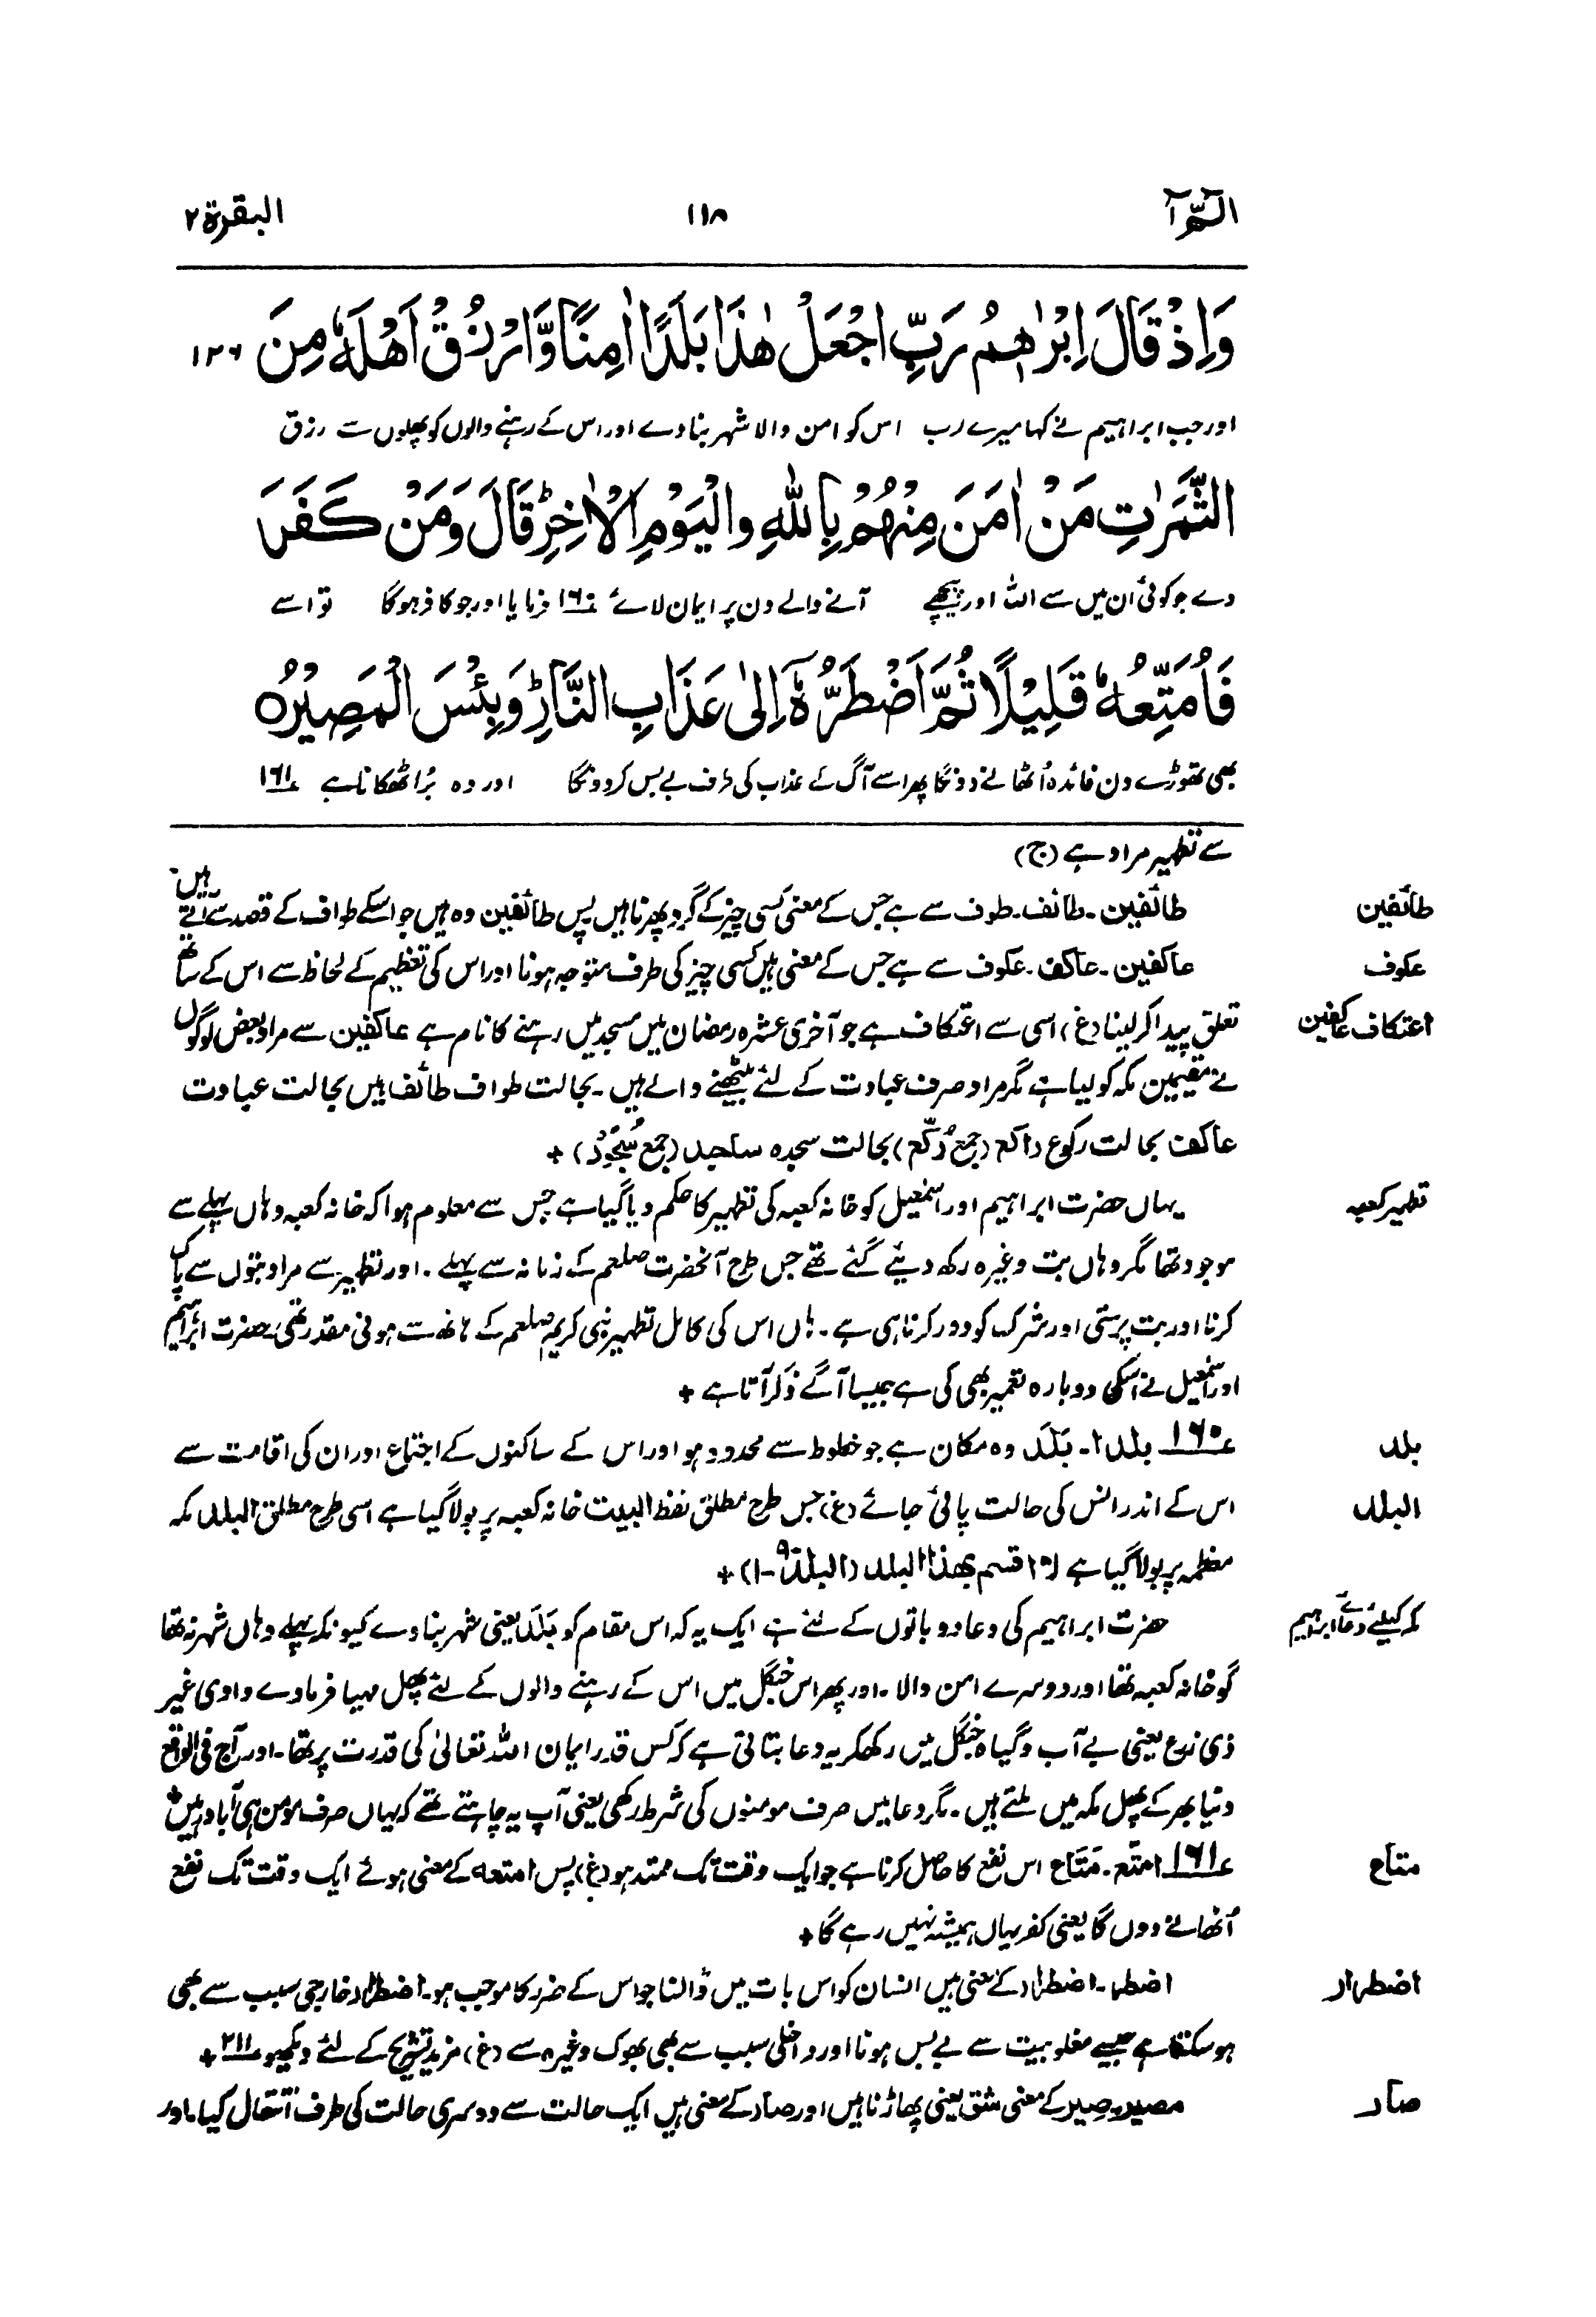 الٓمّٓ ١ ١١٨ البقرة ٢
وَاِذْ قَالَ اِبْرٰهٖمُ رَبِّ اجْعَلْ هٰذَا بَلَدًا اٰمِنًا وَّارْزُقْ اَهْلَهٗ مِنَ ١٢٦
اور جب ابراہیم نے کہا میرے رب اس کو امن والا شہر بنا دے اور اس کے رہنے والوں کو پھلوں سے رزق
الثَّمَرٰتِ مَنْ اٰمَنَ مِنْهُمْ بِاللّٰهِ وَالْيَوْمِ الْاٰخِرِ ؕ قَالَ وَمَنْ كَفَرَ
دے جو کوئی ان میں سے اللہ اور پیچھے آنے والے دن پر ایمان لائے ١٦٠ فرمایا اور جو کافر ہوگا تو اسے
فَاُمَتِّعُهٗ قَلِيْلًا ثُمَّ اَضْطَرُّهٗٓ اِلٰى عَذَابِ النَّارِ ؕ وَبِئْسَ الْمَصِيْرُ ○
بھی تھوڑے دن فائدہ اُٹھانے دونگا پھر اسے آگ کے عذاب کی طرف بے بس کردونگا اور وہ بُرا ٹھکانا ہے ١٦١
سے تطہیر مراد ہے (ج)
طائفین طائفین۔ طائف۔ طوف سے ہے جس کے معنی کسی چیز کے گرد پھرنا ہیں پس طائفین وہ ہیں جو اسکے طواف کے قصد سے آتے ہیں۔
عکوف عاکفین۔ عاکف۔ عکوف سے ہے جس کے معنی ہیں کسی چیز کی طرف متوجہ ہونا اور اس کی تعظیم کے لحاظ سے اس کے ساتھ
اعتکاف عاکفین تعلق پیدا کر لینا (غ) اسی سے اعتکاف ہے جو آخری عشرہ رمضان میں مسجد میں رہنے کا نام ہے عاکفین سے مراد بعض لوگوں
نے مقیمین مکہ کو لیا ہے مگر مراد صرف عبادت کے لئے بیٹھنے والے ہیں۔ بحالت طواف طائف ہیں بحالت عبادت
عاکف بحالت رکوع راکع (جمع رُکَّع) بحالت سجدہ ساجد (جمع سُجُوْد) +
تطہیر کعبہ یہاں حضرت ابراہیم اور اسمٰعیل کو خانہ کعبہ کی تطہیر کا حکم دیا گیا ہے جس سے معلوم ہوا کہ خانہ کعبہ وہاں پہلے سے
موجود تھا مگر وہاں بت وغیرہ رکھ دیئے گئے تھے جس طرح آنحضرت صلعم کے زمانہ سے پہلے۔ اور تطہیر سے مراد بتوں سے پاک
کرنا اور بت پرستی اور شرک کو دور کرنا ہی ہے۔ ہاں اس کی کامل تطہیر نبی کریم صلعم کے ہاتھ سے ہونی مقدر تھی۔ حضرت ابراہیم
اور اسمٰعیل نے اسکی دوبارہ تعمیر بھی کی ہے جیسا آگے ذکر آتا ہے +
بلد ١٦٠ بلدا۔ بَلَد وہ مکان ہے جو خطوط سے محدود ہو اور اس کے ساکنوں کے اجتماع اور ان کی اقامت سے
البلد اس کے اندر انس کی حالت پائی جائے (غ) جس طرح مطلق لفظ البیت خانہ کعبہ پر بولا گیا ہے اسی طرح مطلق البلد مکہ
معظمہ پر بولا گیا ہے لا اقسم بھذا البلد (البلد ٩٠-١) +
مکہ کیلئے دعائے ابراہیم حضرت ابراہیم کی دعا دو باتوں کے لئے ہے ایک یہ کہ اس مقام کو بَلَد یعنی شہر بنا دے کیونکہ پہلے وہاں شہر نہ تھا
گو خانہ کعبہ تھا اور دوسرے امن والا۔ اور پھر اس جنگل میں اس کے رہنے والوں کے لئے پھل مہیا فرمادے وادی غیر
ذی زرع یعنی بے آب و گیاہ جنگل میں رکھکر یہ دعا بتاتی ہے کہ کس قدر ایمان اللہ تعالیٰ کی قدرت پر تھا۔ اور آج فی الواقع
دنیا بھر کے پھل مکہ میں ملتے ہیں۔ مگر دعا میں صرف مومنوں کی شرط رکھی یعنی آپ یہ چاہتے تھے کہ یہاں صرف مومن ہی آباد رہیں +
متاع ١٦١ امتّع۔ مَتَاع اس نفع کا حاصل کرنا ہے جو ایک وقت تک ممتد ہو (غ) پس امتعه کے معنی ہوئے ایک وقت تک نفع
اُٹھانے دوں گا یعنی کفر یہاں ہمیشہ نہیں رہے گا +
اضطرار اضطر۔ اضطرار کے معنی ہیں انسان کو اس بات میں ڈالنا جو اس کے ضرر کا موجب ہو۔ اضطرار خارجی سبب سے بھی
ہو سکتا ہے جیسے مغلوبیت سے بے بس ہونا اور داخلی سبب سے بھی بھوک وغیرہ سے (غ) مزید تشریح کے لئے دیکھو ٢١١ +
صَار مصیر۔ صِیر کے معنی شق یعنی پھاڑنا ہیں اور صار کے معنی ہیں ایک حالت سے دوسری حالت کی طرف انتقال کیا۔ اور